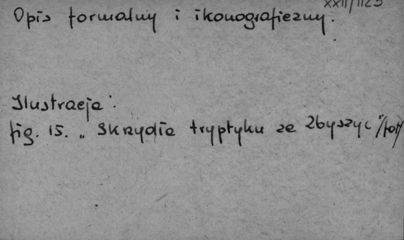 XXII/1125
Opis formalny i ikonograficzny.
Ilustracja:
fig. 15. „Skrzydła tryptyku ze Zbyszyc"/fot/